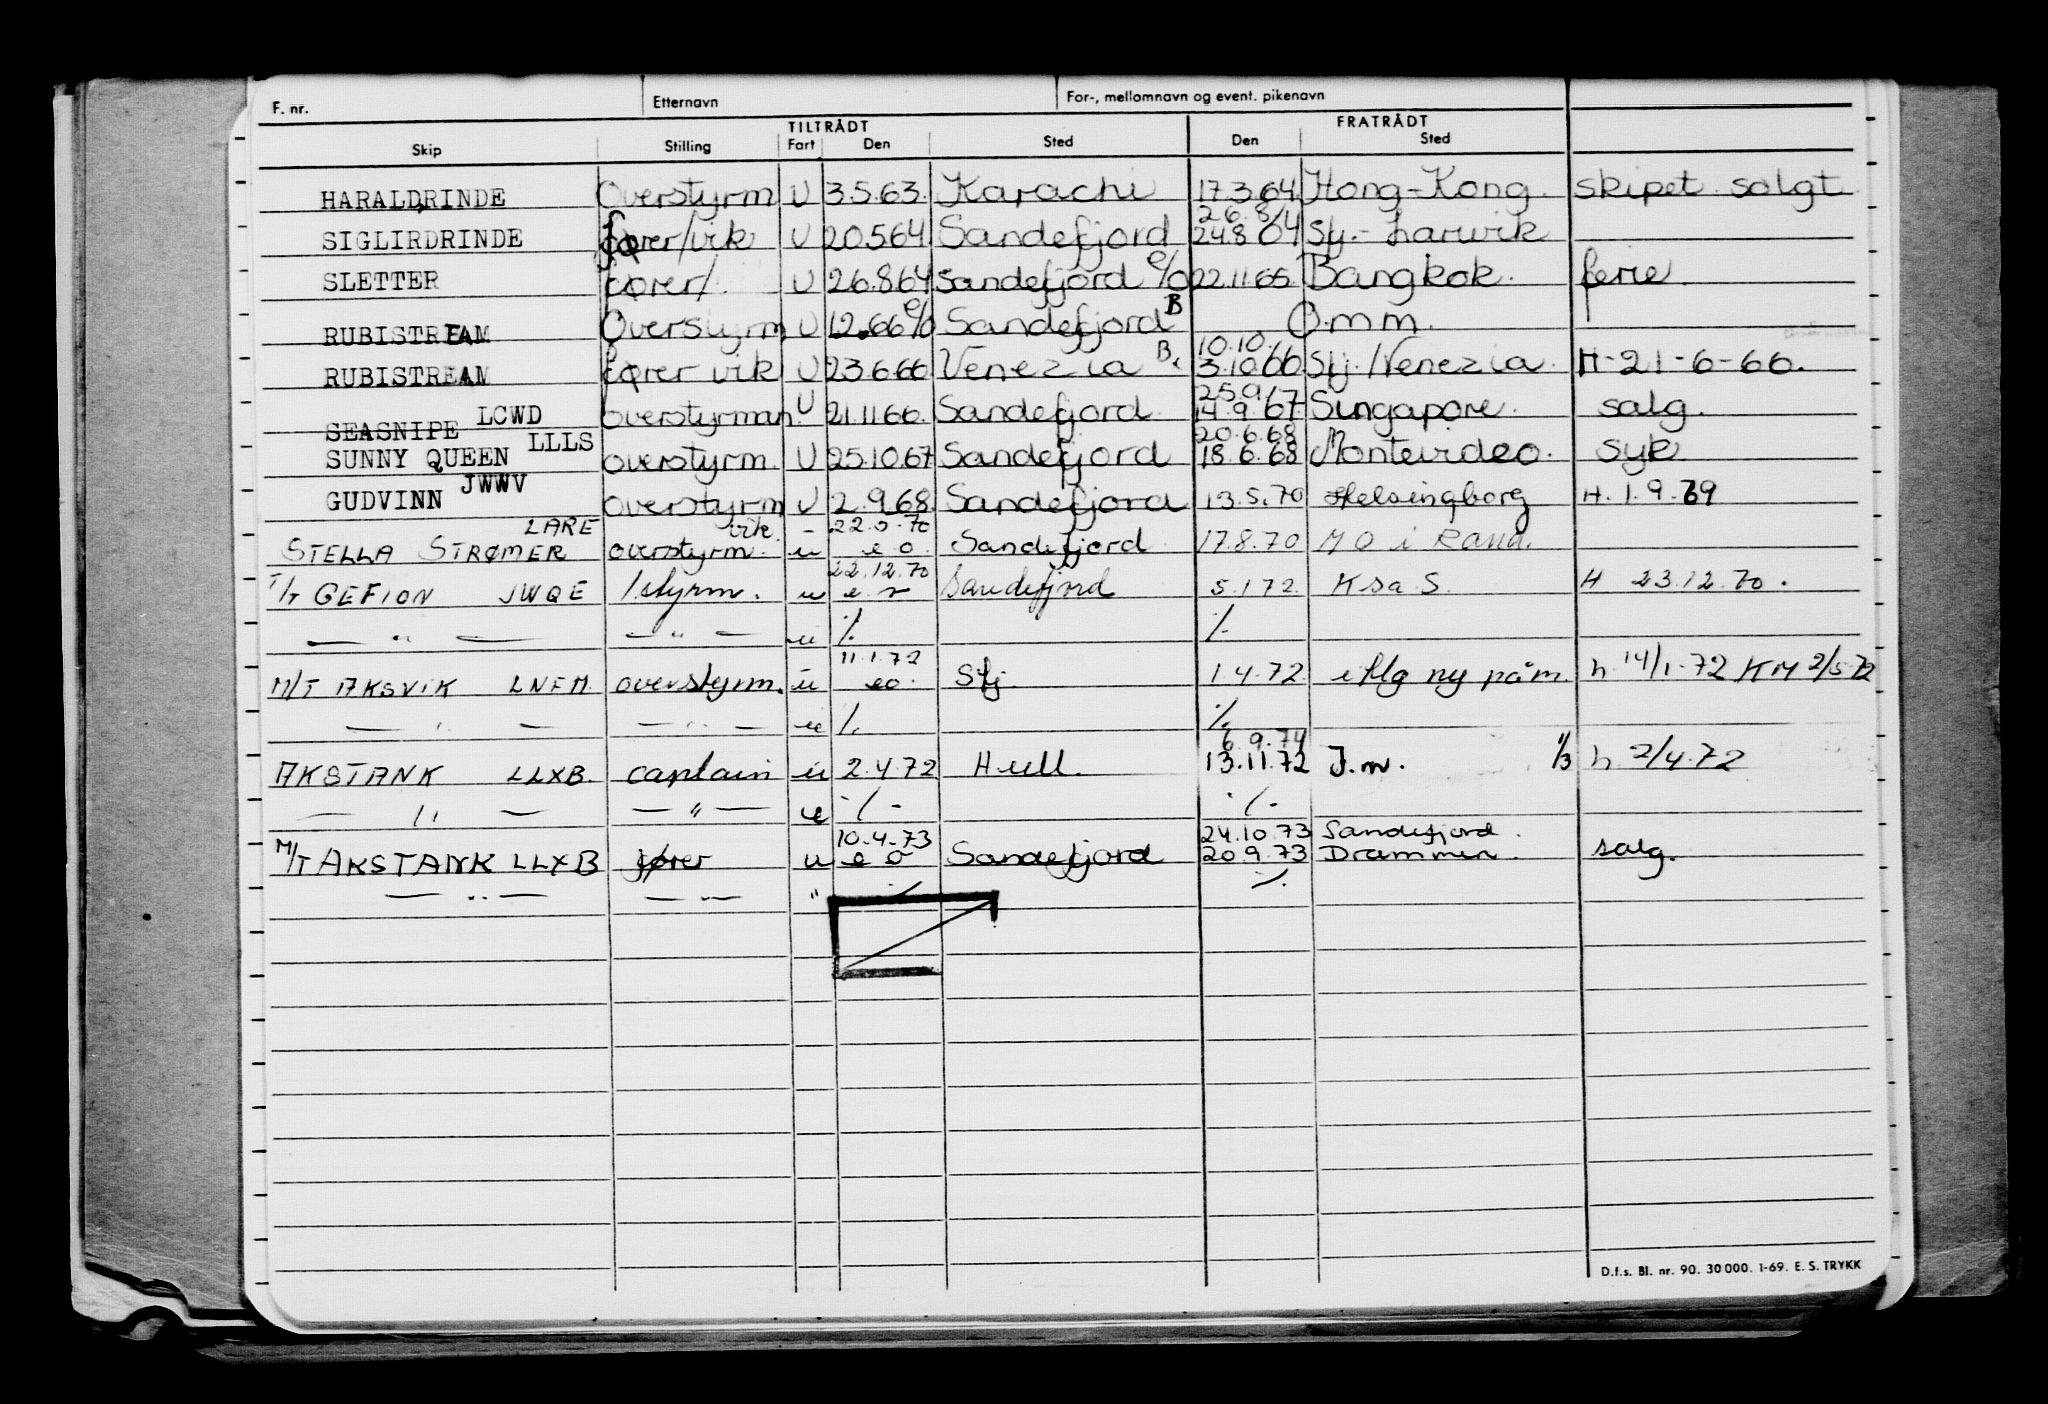 F. nr. Etternavn For-, mellomnavn og event. pikenavn
TILTRÅDT FRATRÅDT
Skip Stilling Fart Den Sted Den Sted
HARALDRINDE Overstyrm U 3.5.63. Karachi 17.3.64 Hong-Kong. skipet solgt
26.8/4
SIGLIRDRINDE fører/vik U 20.5.64 Sandefjord 24.8 64 Sfj.- Larvik
SLETTER fører/. U 26.8.64 Sandefjord e/o 22.11.65. Bangkok. ferie.
RUBISTREAM Overstyrm U 12.66 e/o Sandefjord B O.m.m.
10.10.
RUBISTREAM fører vik U 23.6.66 Venezia B. 3.10.66 Sfj./Venezia. H-21-6-66.
25.9/7
SEASNIPE LCWD overstyrman. U 21.11.66. Sandefjord. 14.9.67. Singapore. salg.
20.6.68
SUNNY QUEEN LLLS overstyrm. U 25.10.67 Sandefjord 18.6.68 Montevideo. syk
GUDVINN JWWV overstyrm U 2.9.68. Sandefjord 13.5.70 Helsingborg H.1.9.69
LARE vik. - 22.5.70
STELLA STRØMER overstyrm. u e o. Sandefjord 17.8.70 M O i Rana.
22.12.70
T/T GEFION JWQE 1styrm. u e. Sandefjord 5.1.72. H 23.12.70.
— " — — " — u ./. ./.
11.1.72
M/T AKSVIK LNFM. overstyrm. u eo. Sfj. 1.4.72. iflg ny påm. h. 14/1-72 KM 2/5-72
— " — — " — u ./. ./.
6.9.74
AKSTANK LLXB. captain u 2.4.72 Hull. 13.11.72 J.m. 1/3 h 2/4.72
— " — — " — u ./. ./.
10.4.73 24.10.73 Sandefjord.
M/T AKSTANK LLXB fører u e o Sandefjord 20.9.73 Drammen. salg.
— " — — " — " ./. ./.
D.f.s. Bl. nr. 90. 30 000. 1-69. E. S. TRYKK